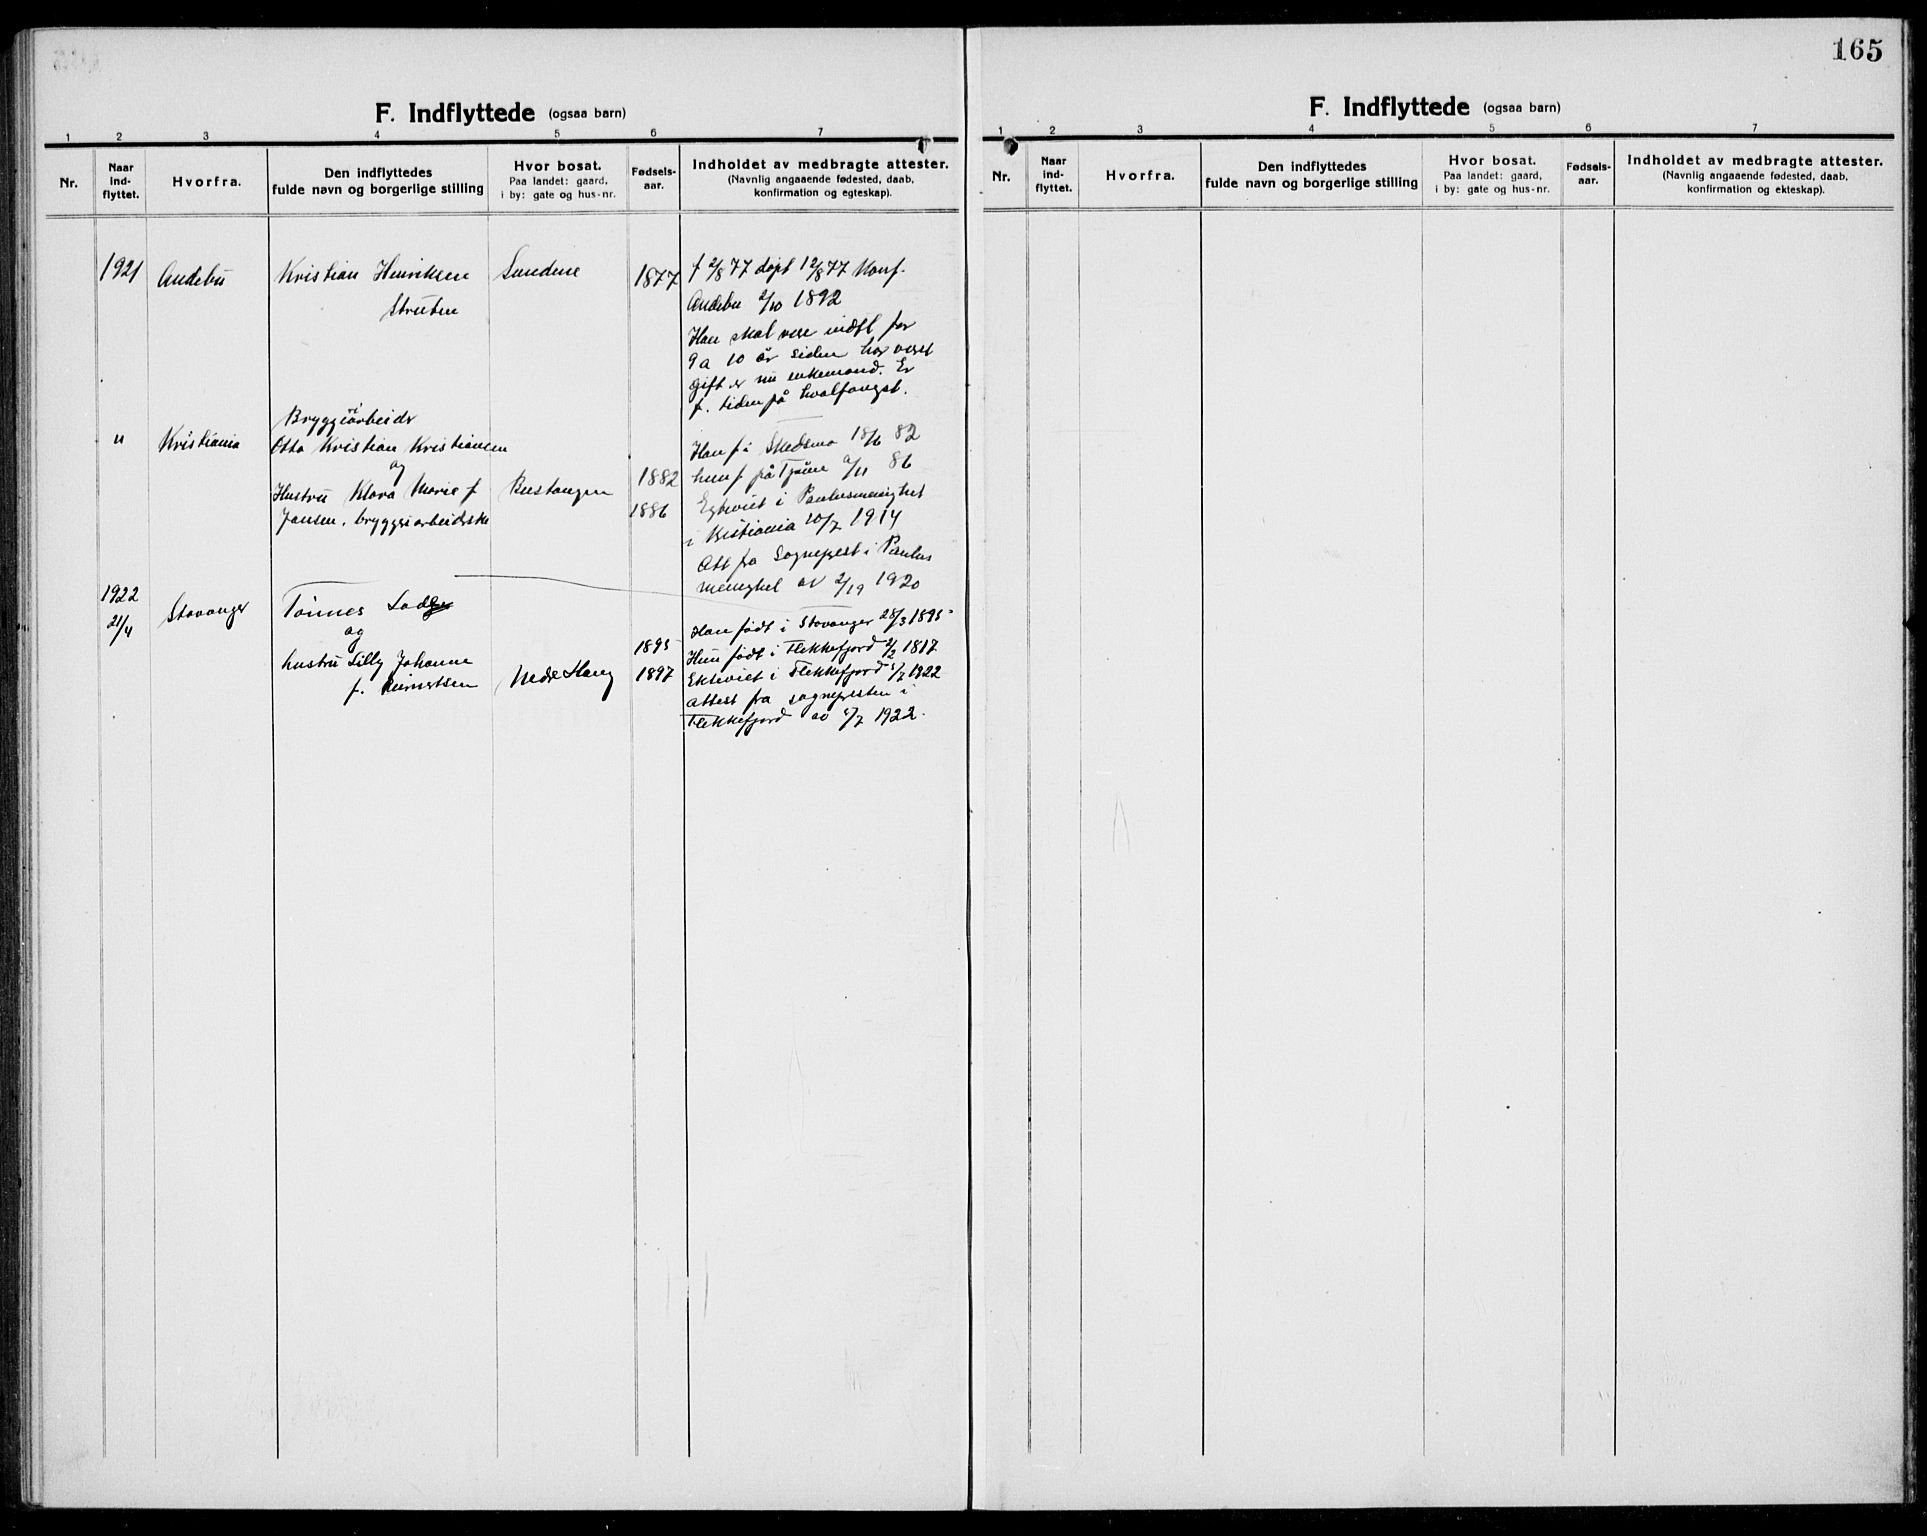 165
F. Indflyttede (ogsaa barn)
1 2 3 4 5 6 7
Nr.
Naar ind-flyttet.
Hvorfra.
Den indflyttedes
fulde navn og borgerlige stilling
Hvor bosat.
Paa landet: gaard,
i by: gate og hus-nr.
Fødsels-
aar.
Indholdet av medbragte attester.
(Navnlig angaaende fødested, daab,
konfirmation og egteskap).
1921 Andebu Kristian Henriksen Sundene 1877 f 2/8 77 døpt 12/8 77 Konf.
Andebu 2/10 1892
Han skal vere indfl for
9 a 10 år siden har veret
gift er nu enkemand. Er
f. tiden på hvalfangst.
Bryggeriarbeider
" Kristiania Otto Kristian Kristiansen
og
Hustru Klara Marie f
Jansen, bryggeriarbeiderske
1882
1886
Han f i Skedsmo 18/6 82
hun f på Tjøme /11 86
Egteviet i Paulusmenighet
i Kristiania 10/7 1914
Att fra Sogneprest i Paulus
menighet av 2/19 1920
1922
21/4 Stavanger Tønnes
og
hustru Lilly Johanne
f. Reinertsen
Nedre Haug
1895
1897
Han født i Stavanger 28/3 1895
Hun født i Flekkefjord 2/2 1897
Ekteviet i Flekkefjord /7 1922
attest fra sognepresten i
Flekkefjord av /7 1922.
F. Indflyttede (ogsaa barn)
1 2 3 4 5 6 7
Nr.
Naar
ind-
flyttet.
Hvorfra.
Den indflyttedes
fulde navn og borgerlige stilling
Hvor bosat.
Paa landet: gaard,
i by: gate og hus-nr.
Fødsels-
aar.
Indholdet av medbragte attester.
(Navnlig angaaende fødested, daab,
konfirmation og ekteskap).